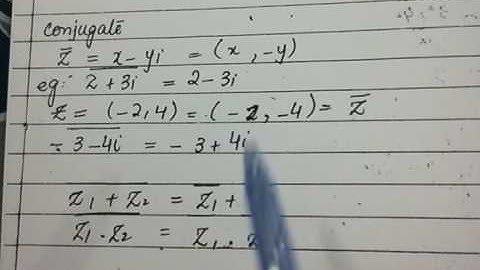 conjugate
z̅ = x - yi = (x, -y)
eg: \overline{2 + 3i} = 2 - 3i
z = (-2, 4) = (-2, -4) = z̅
\overline{-3 - 4i} = -3 + 4i
\overline{z₁ + z₂} = \overline{z₁} +
\overline{z₁ . z₂} = z₁ .